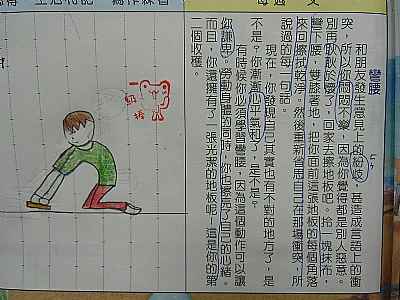 每週一文
彎腰
和朋友發生意見上的紛歧，甚至造成言語上的衝
突，所以你悶悶不樂，因為你覺得都是別人惡意。
別再耿耿於懷了，回家去擦地板吧。拾一塊抹布，
彎下腰，雙膝著地，把你面前這張地板的每個角落
來回擦拭乾淨。然後重新省思自己在那場衝突，所
說過的每一句話。
現在，你發現自己其實也有不對的地方了，是
不是？你漸漸心平氣和了，是不是？
有時候你必須學習彎腰，因為這個動作可以讓
你謙卑。勞動身體的同時，你也擦亮了自己的心緒。
而且，你還擁有了一張光潔的地板呢！這是你的第
一個收穫。
生活札記
寫作練習